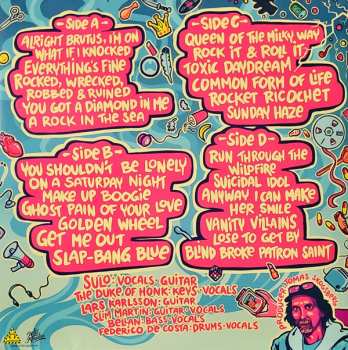 -Side A-
Alright Brutus, I'm on
What if I knocked
Everything's fine
Rocked, wrecked,
robbed & ruined
You got a diamond in me
A rock in the sea
-Side B-
You shouldn't be lonely
on a Saturday night
Make up boogie
Ghost pain of your love
Golden wheel
Get me out
Slap-bang blue
-Side C-
Queen of the milky way
Rock it & roll it
Toxic daydream
Common form of life
Rocket ricochet
Sunday haze
-Side D-
Run through the
wildfire
Suicidal idol
Anyway I can make
her smile
Vanity villains
Lose to get by
Blind broke patron saint
Sulo: vocals, guitar
The Duke of Honk: keys, vocals
Lars Karlsson: guitar
Slim Martin: guitar, vocals
Beltan: bass, vocals
Federico de Costa: drums, vocals